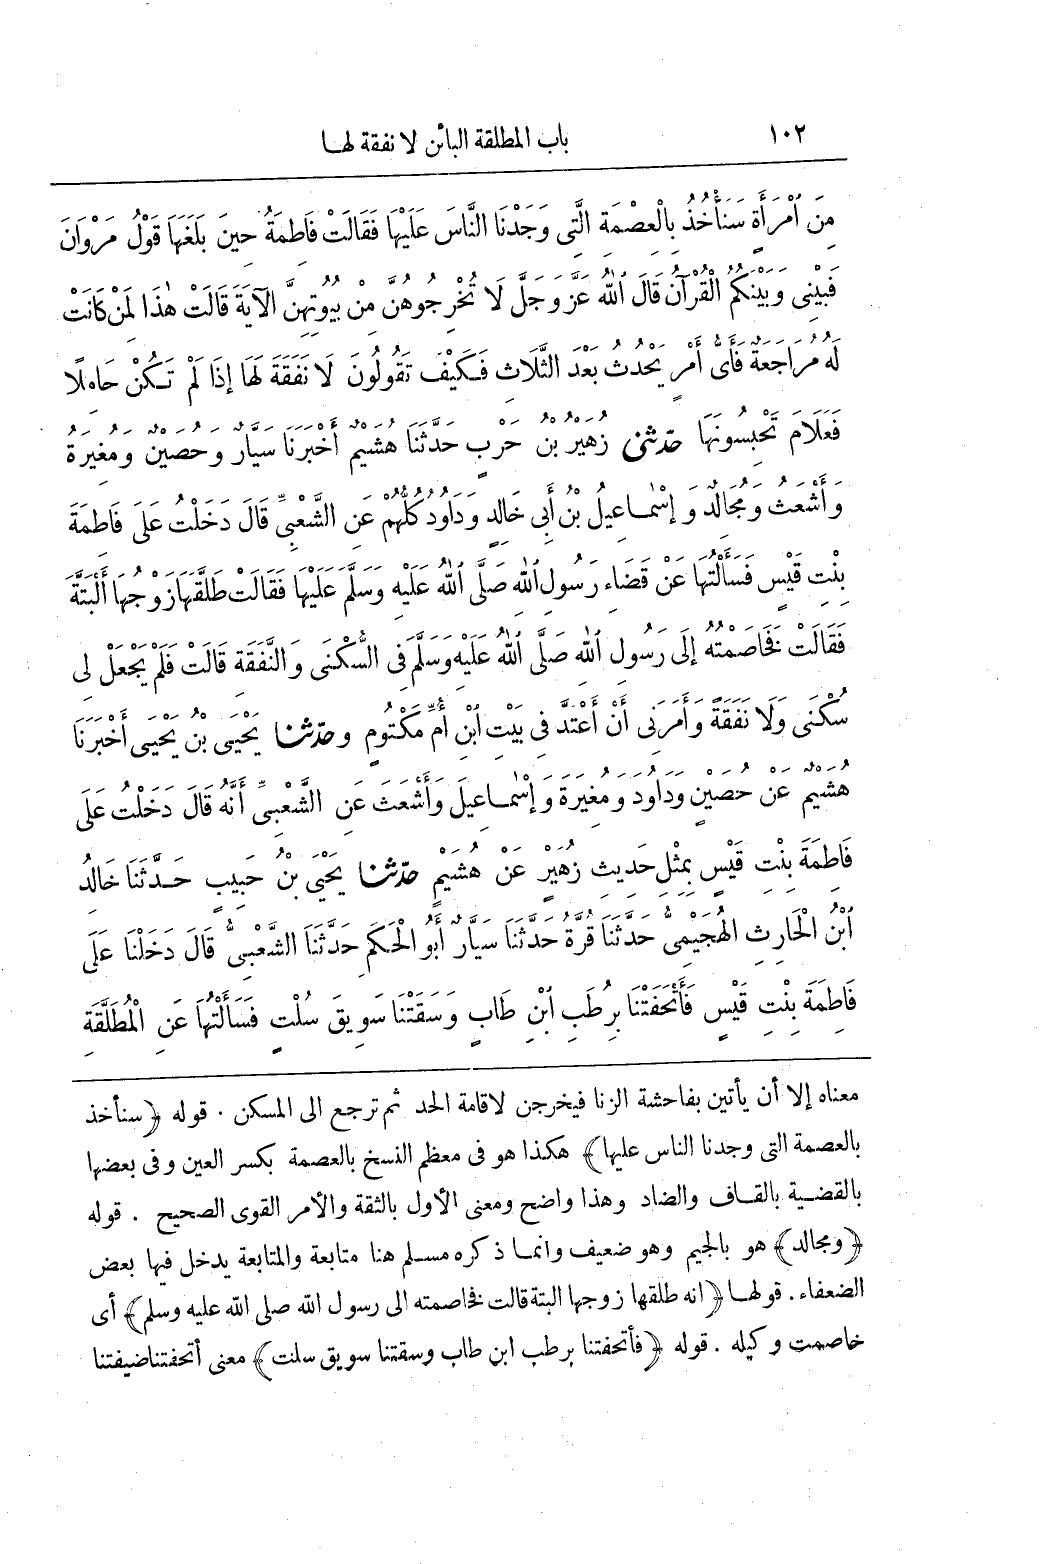 ١٠٢ باب المطلقة البائن لا نفقة لها
مِنَ ٱمْرَأَةٍ سَنَأْخُذُ بِالْعِصْمَةِ الَّتِى وَجَدْنَا النَّاسَ عَلَيْهَا فَقَالَتْ فَاطِمَةُ حِينَ بَلَغَهَا قَوْلُ مَرْوَانَ
فَبَيْنِى وَبَيْنَكُمُ الْقُرْآنُ قَالَ ٱللّٰهُ عَزَّ وَجَلَّ لَا تُخْرِجُوهُنَّ مِنْ بُيُوتِهِنَّ الْآيَةَ قَالَتْ هٰذَا لِمَنْ كَانَتْ
لَهُ مُرَاجَعَةٌ فَأَىُّ أَمْرٍ يَحْدُثُ بَعْدَ الثَّلَاثِ فَكَيْفَ تَقُولُونَ لَا نَفَقَةَ لَهَا إِذَا لَمْ تَكُنْ حَامِلًا
فَعَلَامَ تَحْبِسُونَهَا حَدَّثَنِى زُهَيْرُ بْنُ حَرْبٍ حَدَّثَنَا هُشَيْمٌ أَخْبَرَنَا سَيَّارٌ وَحُصَيْنٌ وَمُغِيرَةُ
وَأَشْعَثُ وَمُجَالِدٌ وَإِسْمٰعِيلُ بْنُ أَبِى خَالِدٍ وَدَاوُدُ كُلُّهُمْ عَنِ الشَّعْبِىِّ قَالَ دَخَلْتُ عَلَى فَاطِمَةَ
بِنْتِ قَيْسٍ فَسَأَلْتُهَا عَنْ قَضَاءِ رَسُولِ ٱللّٰهِ صَلَّى ٱللّٰهُ عَلَيْهِ وَسَلَّمَ عَلَيْهَا فَقَالَتْ طَلَّقَهَا زَوْجُهَا أَلْبَتَّةَ
فَقَالَتْ فَخَاصَمْتُهُ إِلَى رَسُولِ ٱللّٰهِ صَلَّى ٱللّٰهُ عَلَيْهِ وَسَلَّمَ فِى السُّكْنَى وَالنَّفَقَةِ قَالَتْ فَلَمْ يَجْعَلْ لِى
سُكْنَى وَلَا نَفَقَةً وَأَمَرَنِى أَنْ أَعْتَدَّ فِى بَيْتِ ٱبْنِ أُمِّ مَكْتُومٍ وحَدَّثَنَا يَحْيَى بْنُ يَحْيَى أَخْبَرَنَا
هُشَيْمٌ عَنْ حُصَيْنٍ وَدَاوُدَ وَمُغِيرَةَ وَإِسْمٰعِيلَ وَأَشْعَثَ عَنِ الشَّعْبِىِّ أَنَّهُ قَالَ دَخَلْتُ عَلَى
فَاطِمَةَ بِنْتِ قَيْسٍ بِمِثْلِ حَدِيثِ زُهَيْرٍ عَنْ هُشَيْمٍ حَدَّثَنَا يَحْيَى بْنُ حَبِيبٍ حَدَّثَنَا خَالِدُ
ٱبْنُ الْحَارِثِ الْهُجَيْمِىُّ حَدَّثَنَا قُرَّةُ حَدَّثَنَا سَيَّارٌ أَبُو الْحَكَمِ حَدَّثَنَا الشَّعْبِىُّ قَالَ دَخَلْنَا عَلَى
فَاطِمَةَ بِنْتِ قَيْسٍ فَأَتْحَفَتْنَا بِرُطَبِ ٱبْنِ طَابٍ وَسَقَتْنَا سَوِيقَ سُلْتٍ فَسَأَلْتُهَا عَنِ الْمُطَلَّقَةِ
معناه إلا أن يأتين بفاحشة الزنا فيخرجن لاقامة الحد ثم ترجع الى المسكن . قوله ﴿سنأخذ
بالعصمة التى وجدنا الناس عليها﴾ هكذا هو فى معظم النسخ بالعصمة بكسر العين وفى بعضها
بالقضية بالقاف والضاد وهذا واضح ومعنى الأول بالثقة والأمر القوى الصحيح . قوله
﴿ومجالد﴾ هو بالجيم وهو ضعيف وانما ذكره مسلم هنا متابعة والمتابعة يدخل فيها بعض
الضعفاء. قولها ﴿انه طلقها زوجها البتة قالت فخاصمته الى رسول الله صلى الله عليه وسلم﴾ أى
خاصمت وكيله . قوله ﴿فأتحفتنا برطب ابن طاب وسقتنا سويق سلت﴾ معنى أتحفتنا ضيفتنا